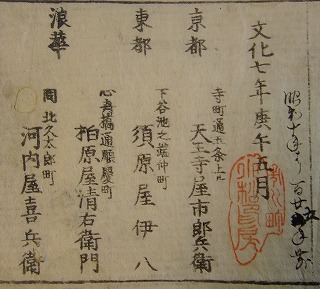 昭和十年ゟ百廿五年前
文化七年庚午五月
京都
寺町通五条上ル
天王寺屋市郎兵衛
東都
下谷池之端仲町
須原屋伊八
浪華
心斎橋通順慶町
柏原屋清右衛門
同北久太郎町
河内屋喜兵衛